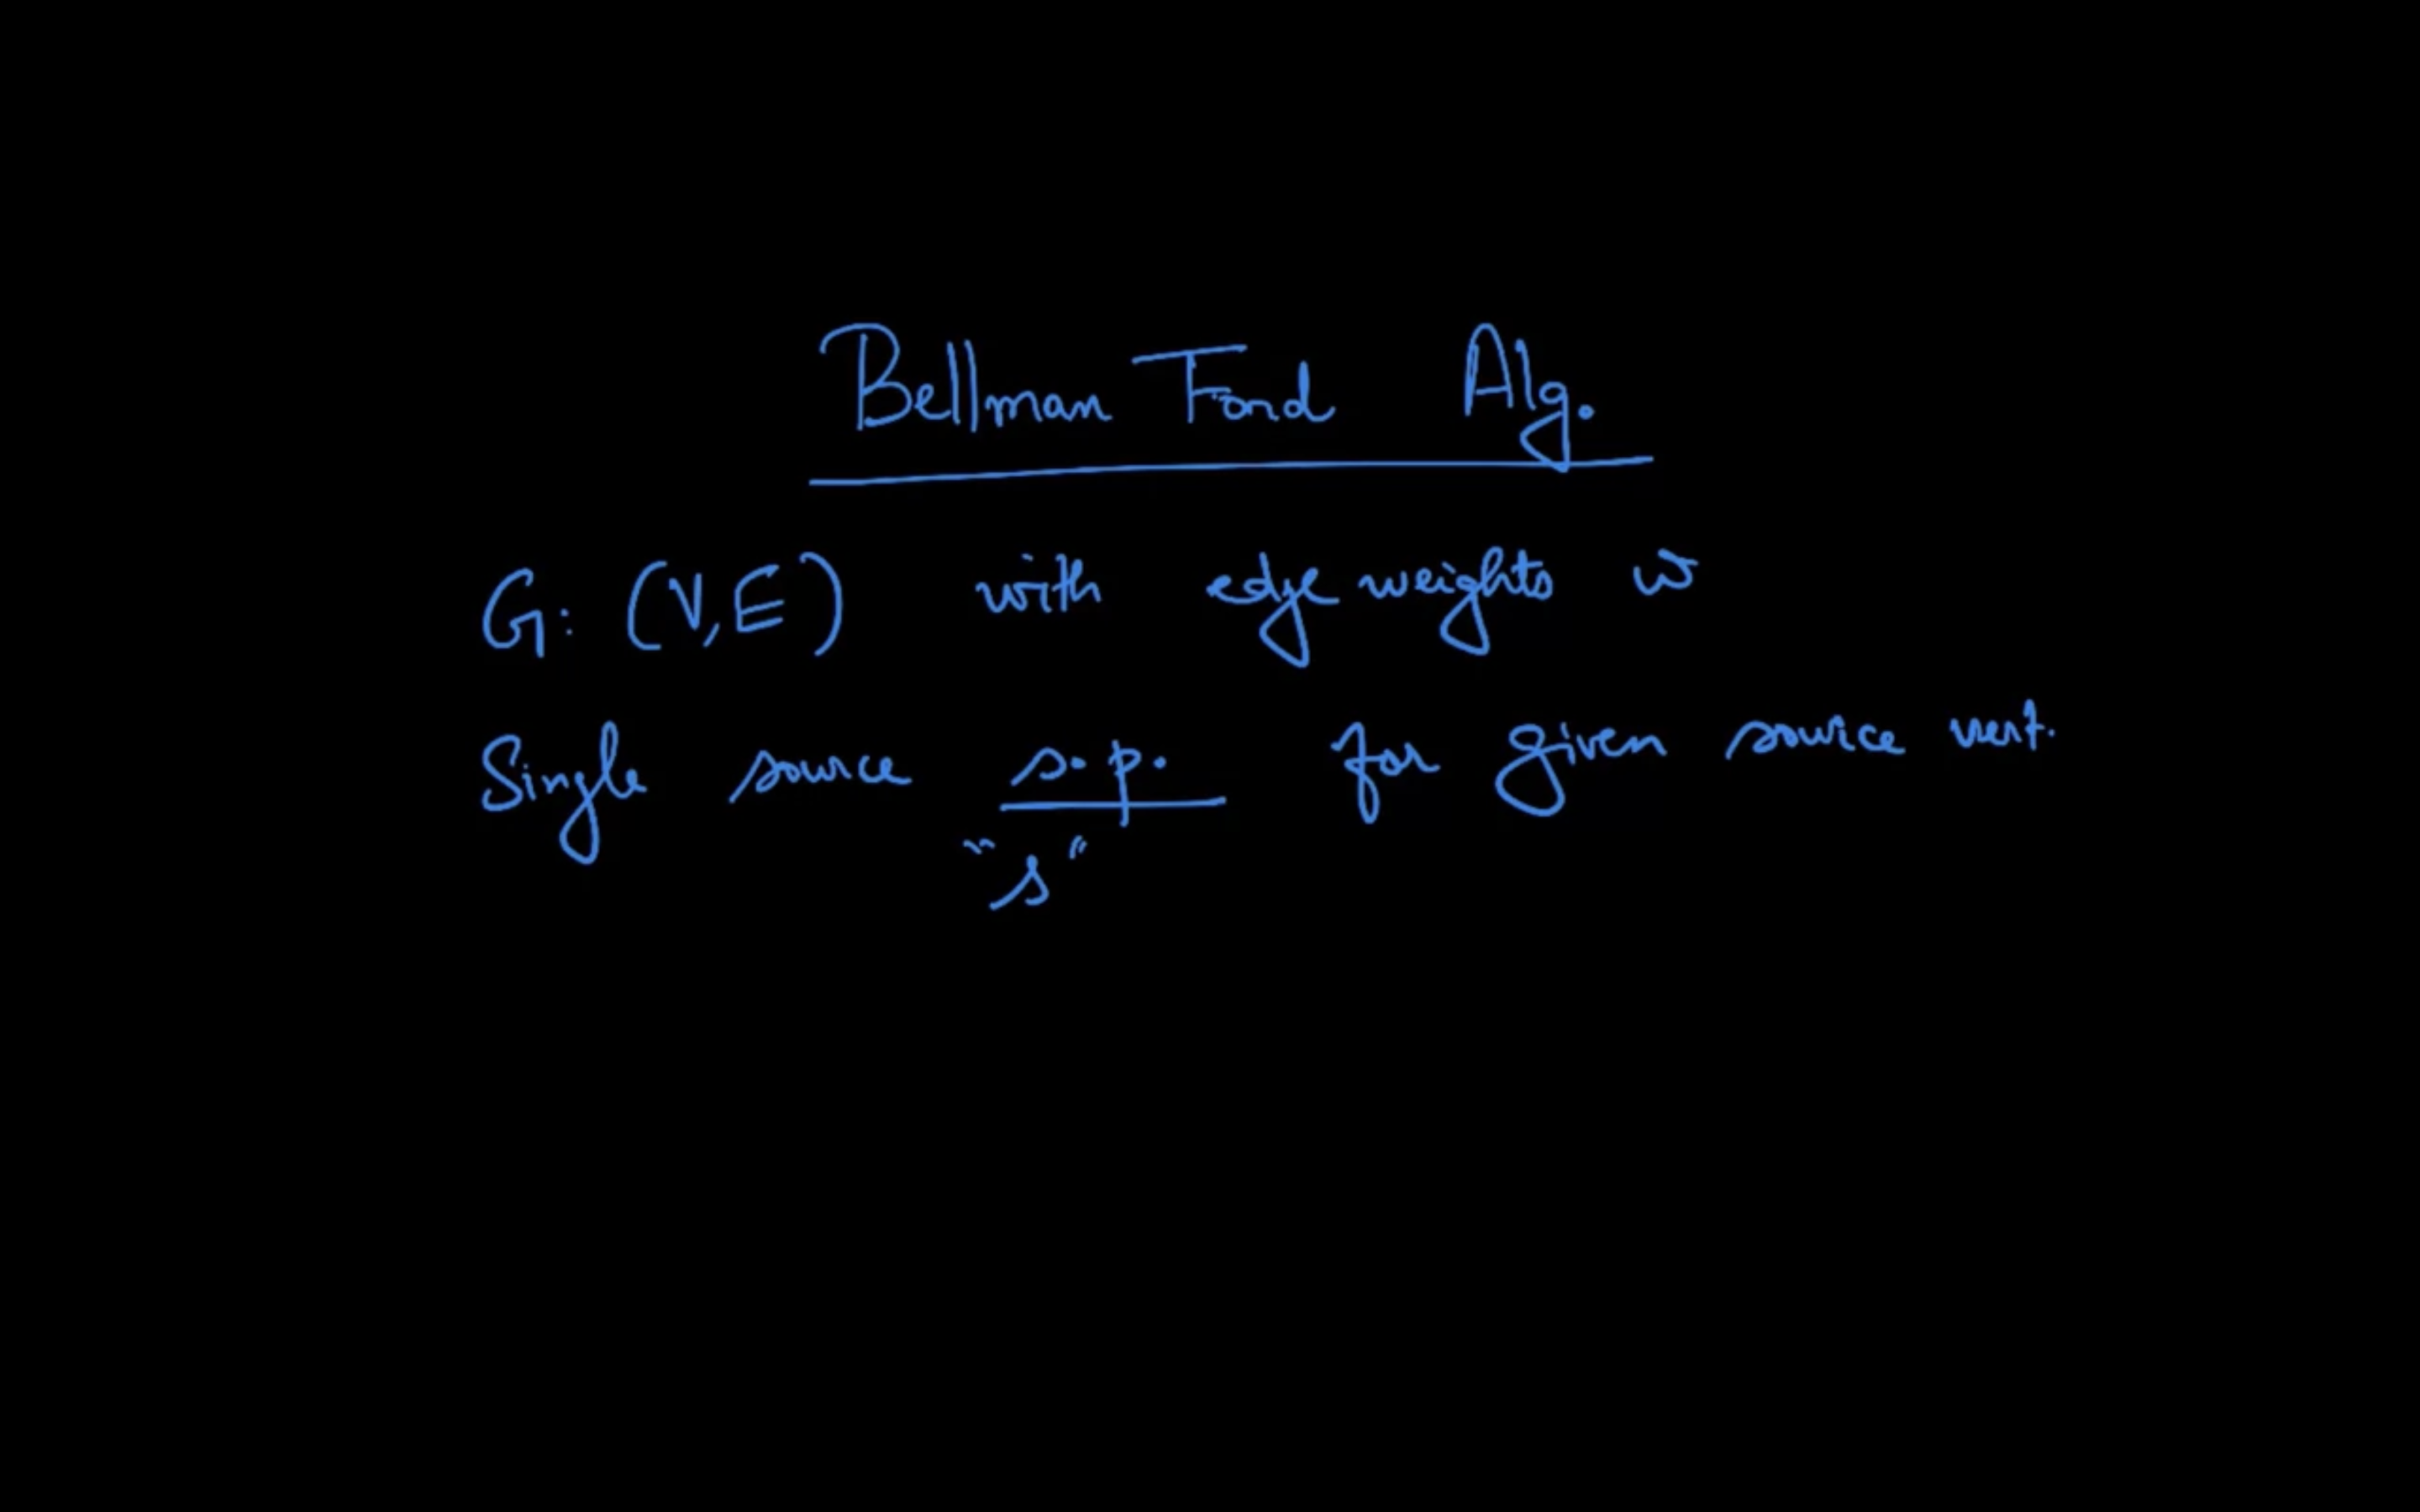 Bellman Ford Alg.
G: (V, E) with edge weights w
Single source s.p. for given source vert.
"s"